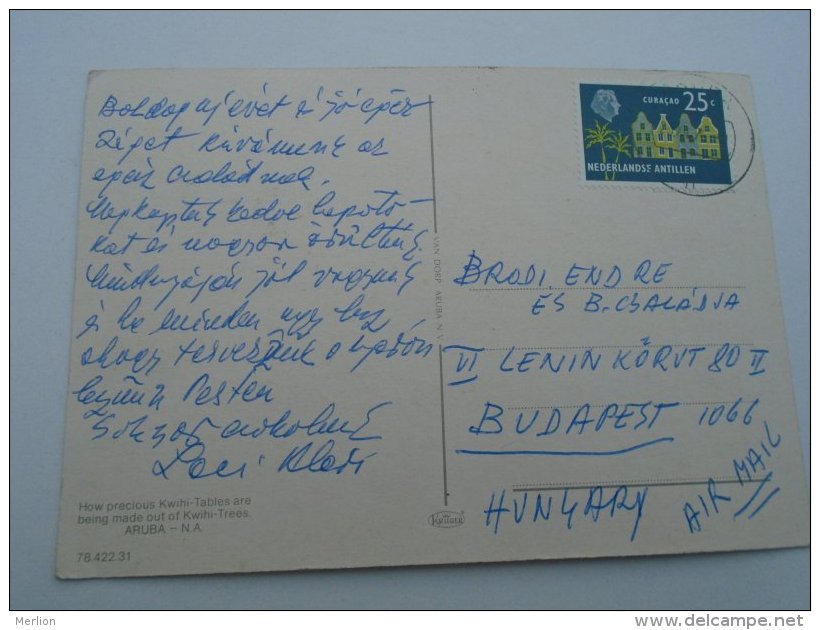 Boldog új évet és jó egész
séget kívánunk az
egész családnak.
Megkaptuk kedves lapoto
kat és nagyon örültünk.
Mindnyájan jól vagyunk
és ha minden úgy lesz
ahogy tervezzük a nyáron
leszünk Pesten
Sokszor csókolunk
Laci
CURAÇAO 25 c
NEDERLANDSE ANTILLEN
VAN DORP ARUBA N.V.
BRODI ENDRE
ES B. CSALÁDJA
VI LENIN KÖRUT 80 II
BUDAPEST 1066
HUNGARY
AIR MAIL
How precious Kwihi-Tables are
being made out of Kwihi-Trees.
ARUBA – N.A.
78.422.31
Kruger
Merlion
www.delcampe.net